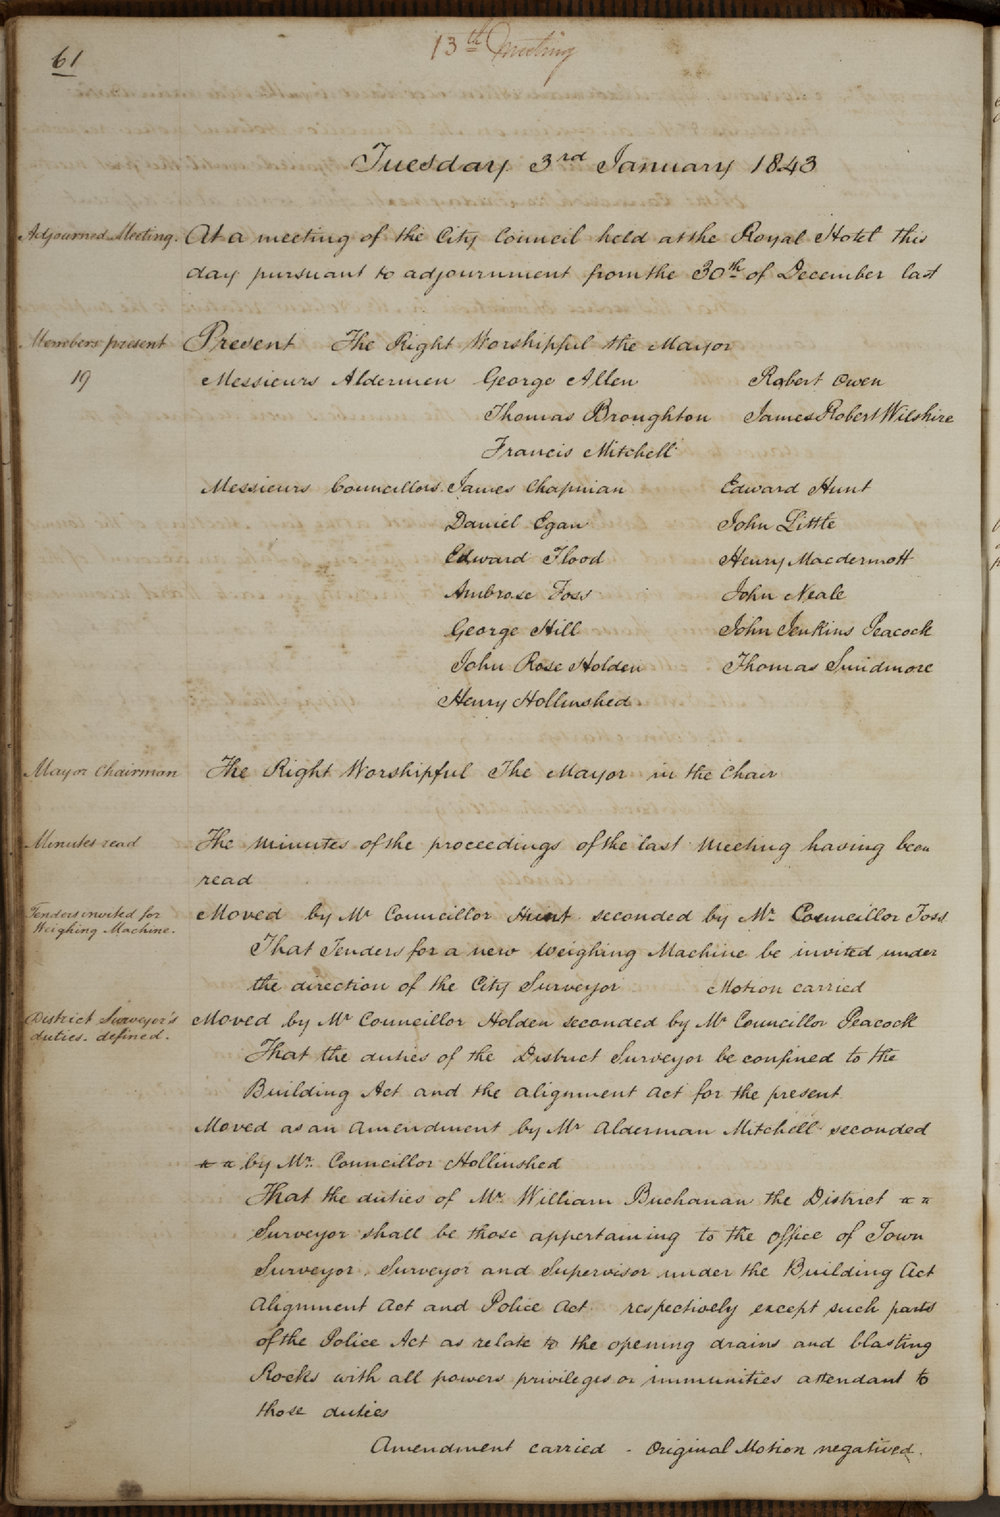 61
13th Meeting
Tuesday 3rd January 1843
Adjourned Meeting. At a meeting of the City Council held at the Royal Hotel this
day pursuant to adjournment from the 30th of December last
Members present Present The Right Worshipful the Mayor
19 Messieurs Aldermen George Allen Robert Owen
Thomas Broughton James Robert Wilshire
Francis Mitchell
Messieurs Councillors. James Chapman Edward Hunt
Daniel Egan John Little
Edward Flood Henry Macdermott
Ambrose Foss John Neale
George Hill John Jenkins Peacock
John Rose Holden Thomas Smidmore
Henry Hollinshed
Mayor Chairman The Right Worshipful The Mayor in the Chair
Minutes read The Minutes of the proceedings of the last Meeting having been
read
Tenders invited for
Weighing Machine.
Moved by Mr Councillor Hunt seconded by Mr. Councillor Foss
That Tenders for a new Weighing Machine be invited under
the direction of the City Surveyor Motion carried
District Surveyor's
duties. defined.
Moved by Mr Councillor Holden seconded by Mr Councillor Peacock
That the duties of the District Surveyor be confined to the
Building Act and the alignment Act for the present
Moved as an Amendment by Mr Alderman Mitchell seconded
by Mr. Councillor Hollinshed
That the duties of Mr William Buchanan the District
Surveyor shall be those appertaining to the Office of Town
Surveyor, Surveyor and Supervisor under the Building Act
Alignment Act and Police Act respectively except such parts
of the Police Act as relate to the opening drains and blasting
Rocks with all powers privileges or immunities attendant to
those duties
Amendment carried - Original Motion negatived.